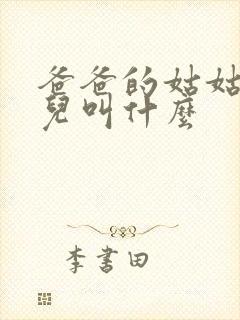 爸爸的姑姑
兒叫什麼
李書田